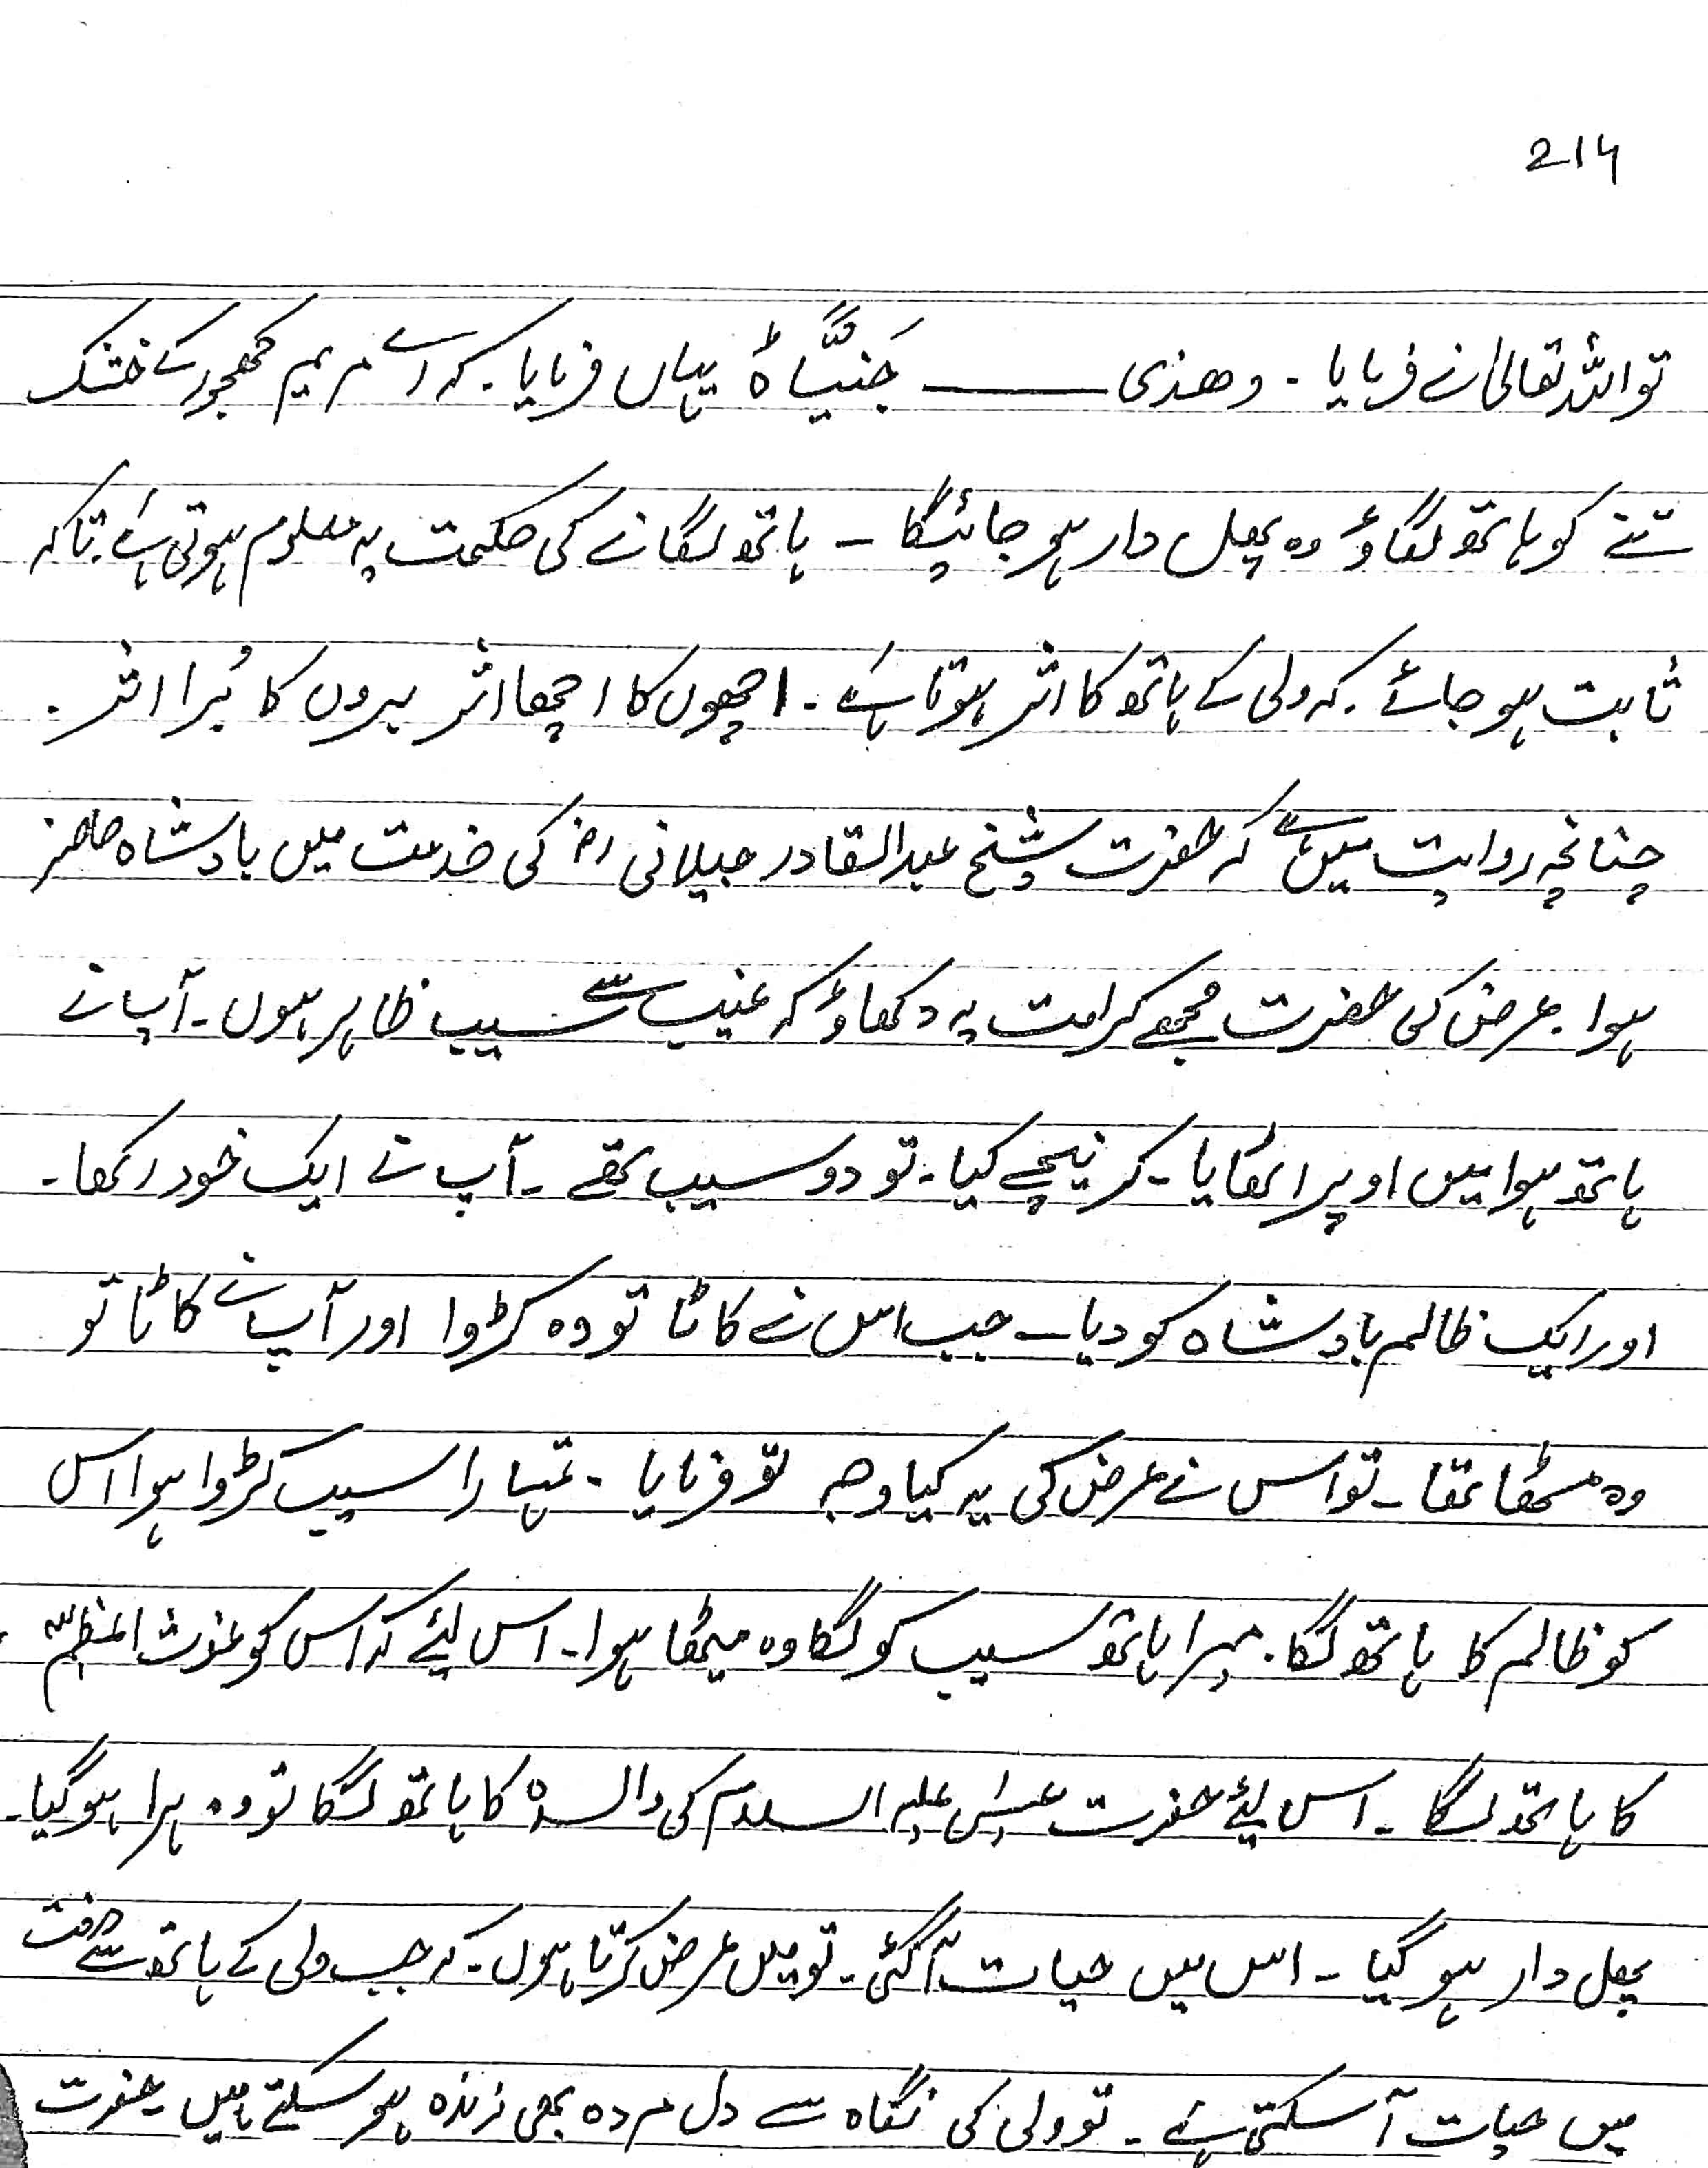 214
تو اللہ تعالیٰ نے فرمایا ۔ وھذی ــــــ جَنِیًّاہ یہاں فرمایا ۔ کہ اے مریم کھجور کے خشک
تنے کو ہاتھ لگاؤ وہ پھل دار ہو جائیگا ۔ ہاتھ لگانے کی حکمت یہ معلوم ہوتی ہے ۔ تاکہ
ثابت ہو جائے ۔ کہ ولی کے ہاتھ کا اثر ہوتا ہے ۔ اچھوں کا اچھا اثر بروں کا بُرا اثر ۔
چنانچہ روایت میں ہے کہ حضرت شیخ عبدالقادر جیلانی رض کی خدمت میں بادشاہ حاضر
ہوا ۔ عرض کی حضرت مجھے کرامت یہ دکھاؤ کہ غیب سے سیب ظاہر ہوں ۔ آپ نے
ہاتھ ہوا میں اوپر اٹھایا ۔ کر نیچے کیا ۔ تو دو سیب تھے ۔ آپ نے ایک خود رکھا ۔
اور ایک ظالم بادشاہ کو دیا ۔ جب اس نے کاٹا تو وہ کڑوا اور آپ نے کاٹا تو
وہ مٹھا تھا ۔ تو اس نے عرض کی یہ کیا وجہ تو فرمایا ۔ تمہارا سیب کڑوا ہوا اس
کو ظالم کا ہاتھ لگا ۔ میرا ہاتھ سیب کو لگا وہ میٹھا ہوا ۔ اس لیئے کہ اس کو غوث اعظمؓ
کا ہاتھ لگا ۔ اس لیئے حضرت عیسیٰ علیہ السلام کی والدہ کا ہاتھ لگا تو وہ ہرا ہو گیا ۔
پھل دار ہو گیا ۔ اس میں حیات آ گئی ۔ تو میں عرض کرتا ہوں ۔ کہ جب ولی کے ہاتھ سے درخت
میں حیات آ سکتی ہے ۔ تو ولی کی نگاہ سے دل مردہ بھی زندہ ہو سکتے ہیں ۔ حضرت